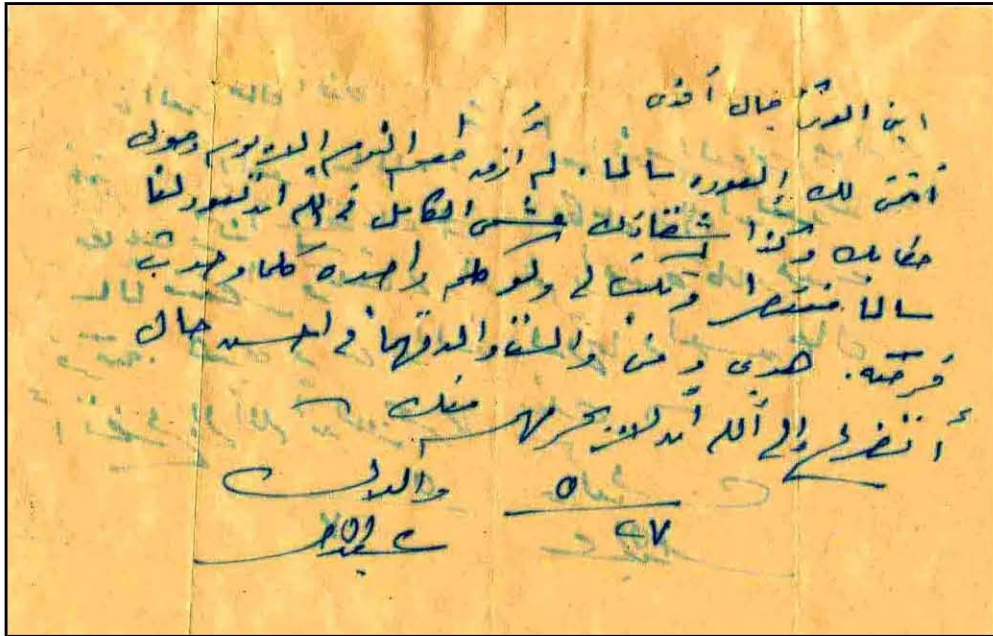 ابني العزيز جمال أفندي
أتمنى لك العودة سالما. لم أذق طعم النوم إلا يوم وصول
خطابك وكذا شقاؤك الكامل أن تعود لنا
سالما منتصرا وتكتب لي ولو كلمة واحدة كلما وجدت
فرصة. هدى و منى والست والدتهما في أحسن حال
أتضرع إلى الله أن لا يحرمهم منك
والدك
٥
٢٧